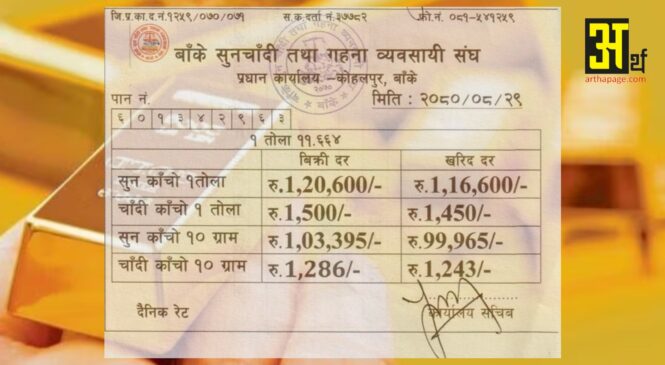 जि.प्र.का.द.नं.१२५९/०७०/०७१ स.क.दर्ता नं.३७७८२ फो.नं. ०८१-५४१२५९
अर्थ
arthapage.com
बाँके सुनचाँदी तथा गहना व्यवसायी संघ
प्रधान कार्यालय –कोहलपुर, बाँके
पान नं. मिति : २०८०/०८/२९
६०१३४२९६३
१ तोला ११.६६४
बिक्री दर खरिद दर
सुन काँचो १तोला रु.1,20,600/- रु.1,16,600/-
चाँदी काँचो १ तोला रु.1,500/- रु.1,450/-
सुन काँचो १० ग्राम रु.1,03,395/- रु.99,965/-
चाँदी काँचो १० ग्राम रु.1,286/- रु.1,243/-
दैनिक रेट कार्यालय सचिब